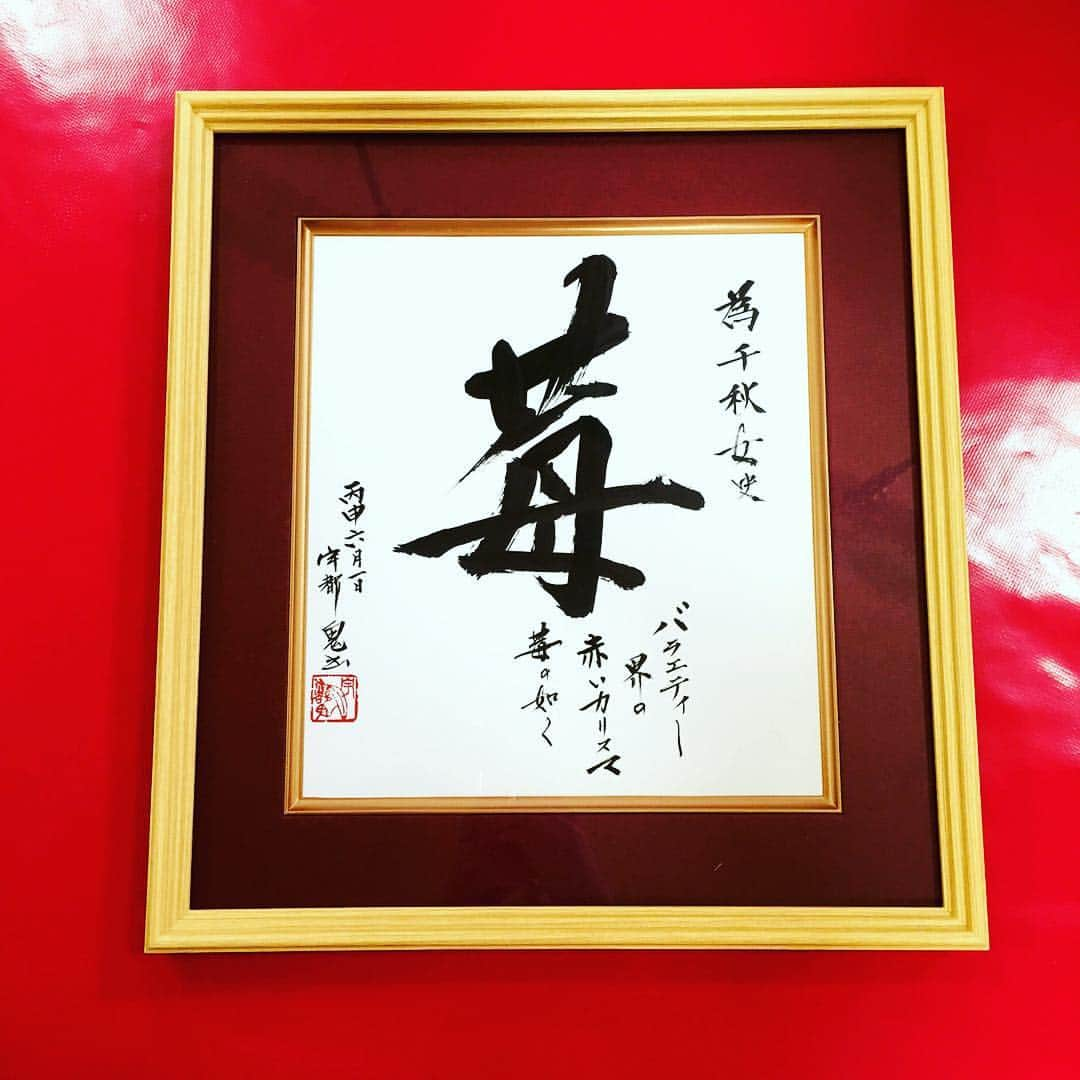 為千秋女史
苺
バラエティー
界の
赤いカリスマ
苺の如く
丙申六月一日
宇都鬼